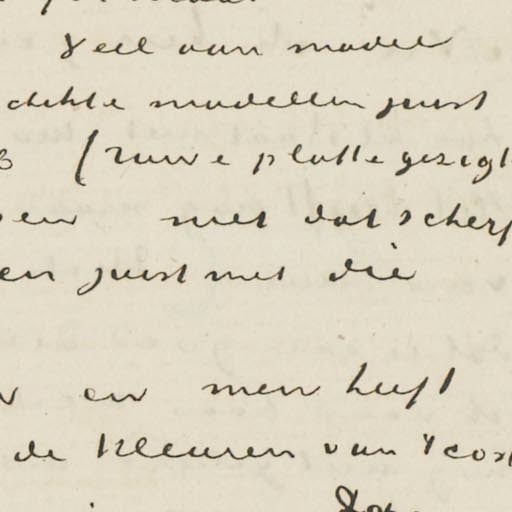 veel aan model
modellen juist
(ruwe platte gezigt
met dat scherp
en juist met die
en men heeft
de kleuren van 't cost